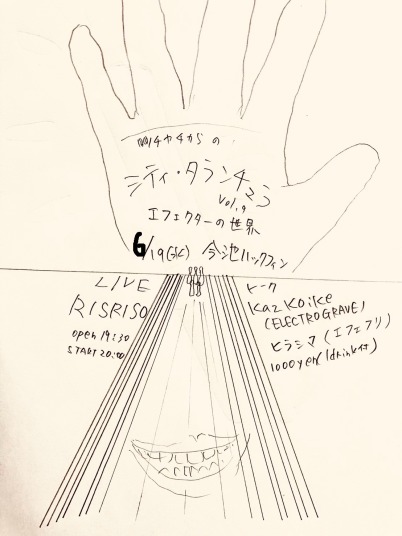 シティ・タランチュラ
Vol.9
エフェクターの世界
6/19(火) 今池ハックフィン
LIVE
RISRISO
open 19:30
START 20:00
トーク
Kaz Koike
(ELECTROGRAVE)
ヒラシマ(エフェフリ)
1000yen(1drink付)